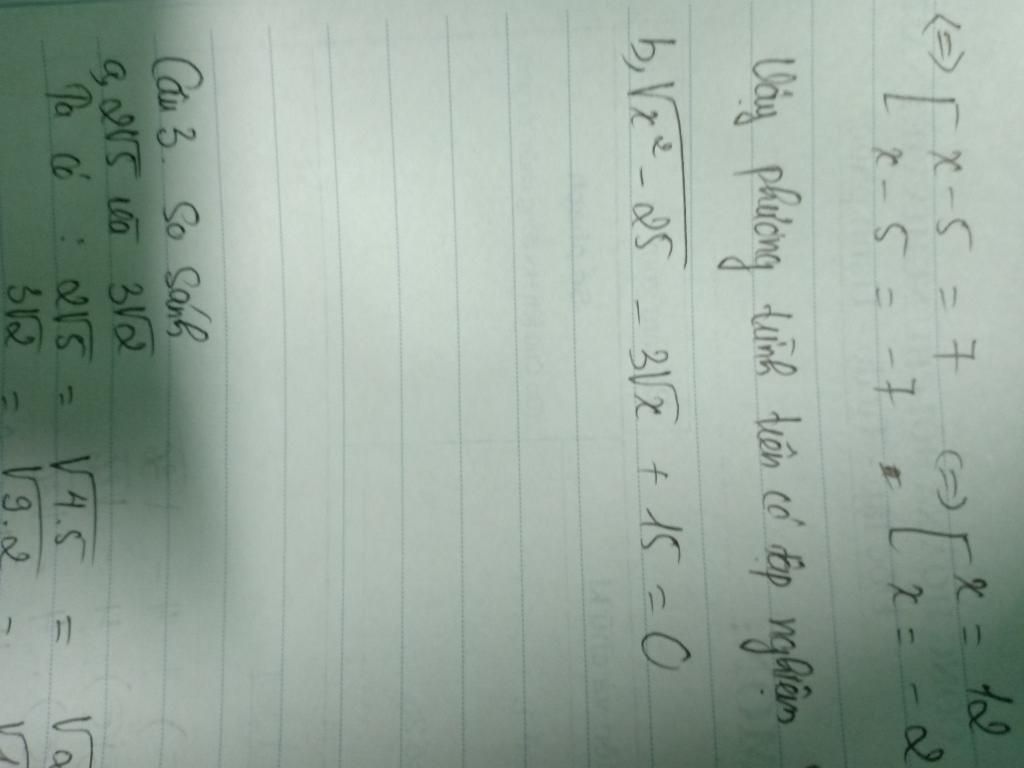 <=> [ x - 5 = 7 <=> [ x = 12
[ x - 5 = -7 [ x = -2
Vậy phương trình trên có tập nghiệm
b, √(x² - 25) - 3√x + 15 = 0
Câu 3. So sánh
a, 2√5 và 3√2
Ta có : 2√5 = √4.5 = √2
3√2 = √9.2 = √1